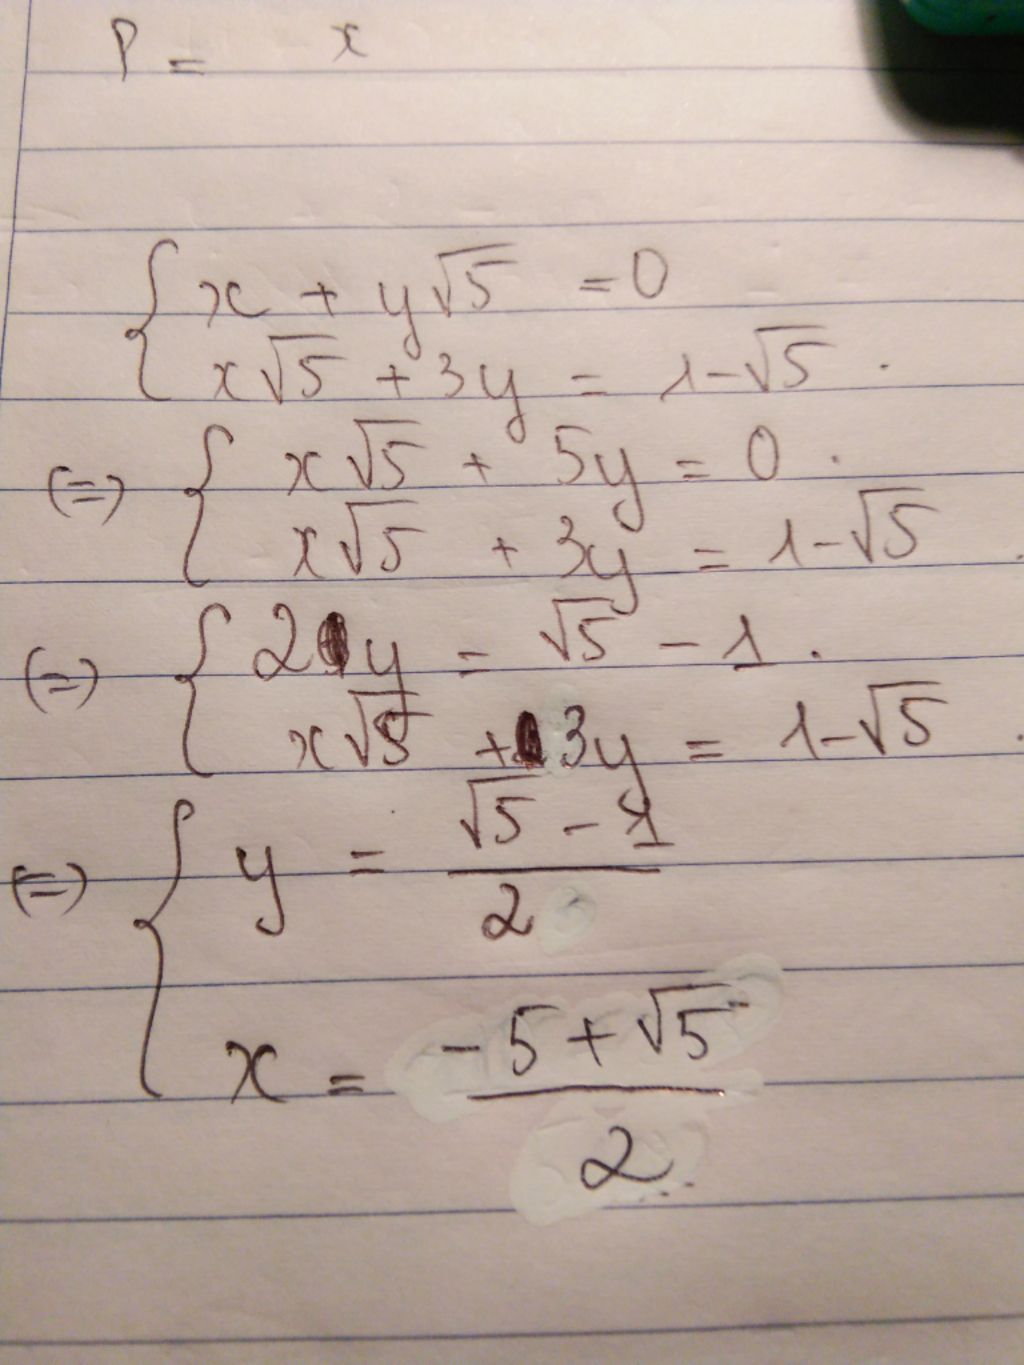 P = x
{ x + y√5 = 0
x√5 + 3y = 1-√5 .
(=) { x√5 + 5y = 0 .
x√5 + 3y = 1-√5 .
(=) { 2y = √5 - 1 .
x√5 + 3y = 1-√5 .
(=) { y = (√5 - 1)/2
x = (-5 + √5)/2